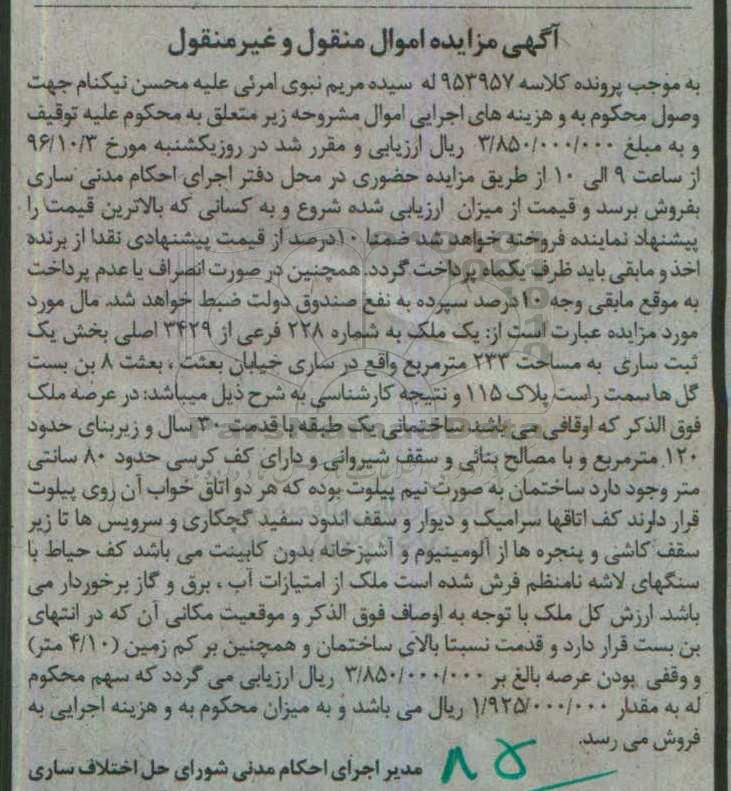 آگهی مزایده اموال منقول و غیرمنقول
به موجب پرونده کلاسه ۹۵۳۹۵۷ له سیده مریم نبوی امرئی علیه محسن نیکنام جهت
وصول محکوم به و هزینه های اجرایی اموال مشروحه زیر متعلق به محکوم علیه توقیف
و به مبلغ ۳/۸۵۰/۰۰۰/۰۰۰ ریال ارزیابی و مقرر شد در روزیکشنبه مورخ ۹۶/۱۰/۳
از ساعت ۹ الی ۱۰ از طریق مزایده حضوری در محل دفتر اجرای احکام مدنی ساری
بفروش برسد و قیمت از میزان ارزیابی شده شروع و به کسانی که بالاترین قیمت را
پیشنهاد نماینده فروخته خواهد شد ضمنا ۱۰درصد از قیمت پیشنهادی نقدا از برنده
اخذ و مابقی باید ظرف یکماه پرداخت گردد. همچنین در صورت انصراف یا عدم پرداخت
به موقع مابقی وجه ۱۰درصد سپرده به نفع صندوق دولت ضبط خواهد شد. مال مورد
مورد مزایده عبارت است از: یک ملک به شماره ۲۲۸ فرعی از ۳۴۲۹ اصلی بخش یک
ثبت ساری به مساحت ۲۳۳ مترمربع واقع در ساری خیابان بعثت ، بعثت ۸ بن بست
گل ها سمت راست پلاک ۱۱۵ و نتیجه کارشناسی به شرح ذیل میباشد: در عرصه ملک
فوق الذکر که اوقافی می باشد ساختمانی یک طبقه با قدمت ۳۰ سال و زیربنای حدود
۱۲۰ مترمربع و با مصالح بنائی و سقف شیروانی و دارای کف کرسی حدود ۸۰ سانتی
متر وجود دارد ساختمان به صورت نیم پیلوت بوده که هر دو اتاق خواب آن روی پیلوت
قرار دارند کف اتاقها سرامیک و دیوار و سقف اندود سفید گچکاری و سرویس ها تا زیر
سقف کاشی و پنجره ها از آلومینیوم و آشپزخانه بدون کابینت می باشد کف حیاط با
سنگهای لاشه نامنظم فرش شده است ملک از امتیازات آب ، برق و گاز برخوردار می
باشد. ارزش کل ملک با توجه به اوصاف فوق الذکر و موقعیت مکانی آن که در انتهای
بن بست قرار دارد و قدمت نسبتا بالای ساختمان و همچنین بر کم زمین (۴/۱۰ متر)
و وقفی بودن عرصه بالغ بر ۳/۸۵۰/۰۰۰/۰۰۰ ریال ارزیابی می گردد که سهم محکوم
له به مقدار ۱/۹۲۵/۰۰۰/۰۰۰ ریال می باشد و به میزان محکوم به و هزینه اجرایی به
فروش می رسد.
مدیر اجرای احکام مدنی شورای حل اختلاف ساری